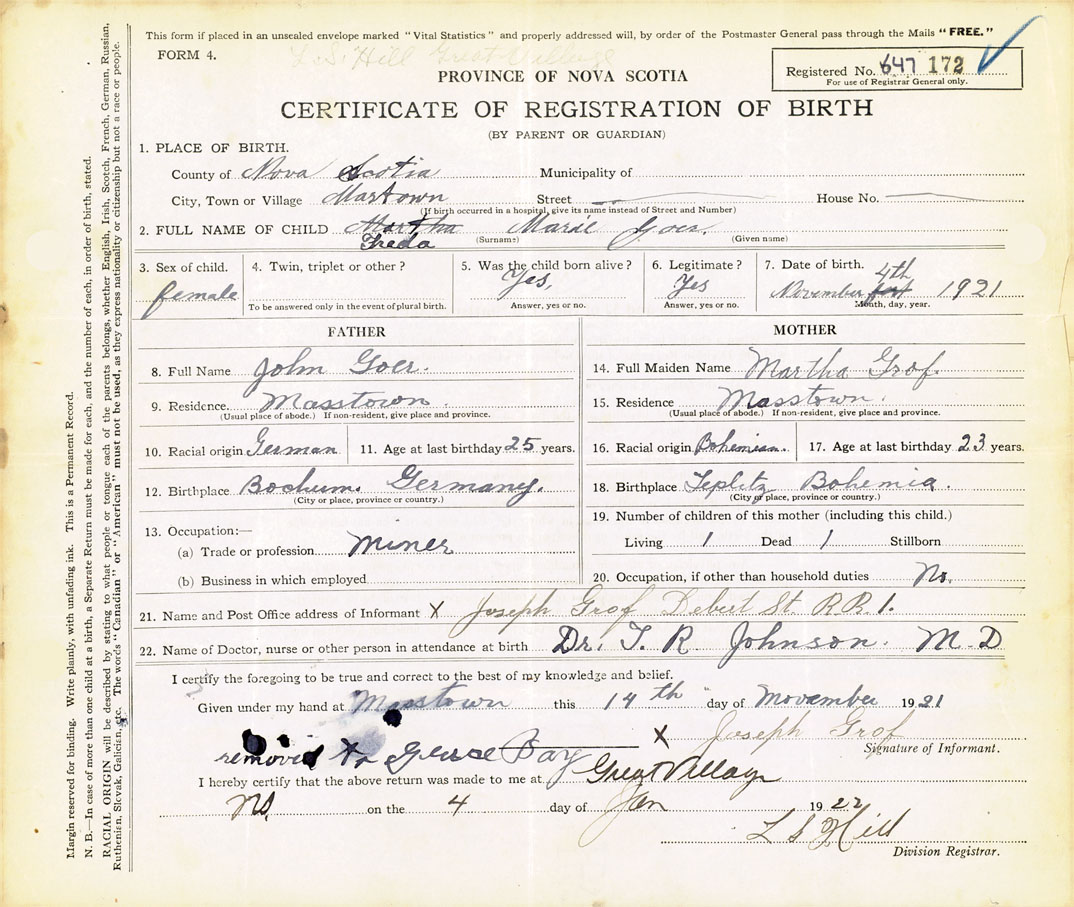 This form if placed in an unsealed envelope marked "Vital Statistics" and properly addressed will, by order of the Postmaster General pass through the Mails "FREE."
FORM 4.
L. S. Hill Great Village
PROVINCE OF NOVA SCOTIA
Registered No. 647 172
For use of Registrar General only.
CERTIFICATE OF REGISTRATION OF BIRTH
(BY PARENT OR GUARDIAN)
1. PLACE OF BIRTH.
County of Nova Scotia Municipality of
City, Town or Village Martown Street House No.
(If birth occurred in a hospital, give its name instead of Street and Number)
2. FULL NAME OF CHILD Martha Marie Goer.
Freda (Surname) (Given name)
3. Sex of child. 4. Twin, triplet or other? 5. Was the child born alive? 6. Legitimate? 7. Date of birth.
female Yes, Yes November 4th 1921
To be answered only in the event of plural birth. Answer, yes or no. Answer, yes or no. Month, day, year.
FATHER
8. Full Name John Goer.
9. Residence. Masstown.
(Usual place of abode.) If non-resident, give place and province.
10. Racial origin German 11. Age at last birthday 25 years.
12. Birthplace Bochum. Germany.
(City or place, province or country.)
13. Occupation:—
(a) Trade or profession miner
(b) Business in which employed
MOTHER
14. Full Maiden Name Martha Grof.
15. Residence Masstown.
(Usual place of abode.) If non-resident, give place and province.
16. Racial origin Bohemian. 17. Age at last birthday 23 years.
18. Birthplace Teplitz Bohemia.
(City or place, province or country.)
19. Number of children of this mother (including this child.)
Living 1 Dead 1 Stillborn
20. Occupation, if other than household duties No.
21. Name and Post Office address of Informant X Joseph Grof Debert St. R.R. 1.
22. Name of Doctor, nurse or other person in attendance at birth Dr. T. R. Johnson. M.D
I certify the foregoing to be true and correct to the best of my knowledge and belief.
Given under my hand at Masstown this 14th day of November 1921
X Joseph Grof
Signature of Informant.
removed to Bay
I hereby certify that the above return was made to me at Great Village
NS. on the 4 day of Jan 1922
L S Hill
Division Registrar.
Margin reserved for binding. Write plainly, with unfading ink. This is a Permanent Record.
N. B.—In case of more than one child at a birth, a Separate Return must be made for each, and the number of each, in order of birth, stated.
RACIAL ORIGIN will be described by stating to what people or tongue each of the parents belongs, whether English, Irish, Scotch, French, German, Russian,
Ruthenian, Slovak, Galician, etc. The words "Canadian" or "American" must not be used, as they express nationality or citizenship but not a race or people.